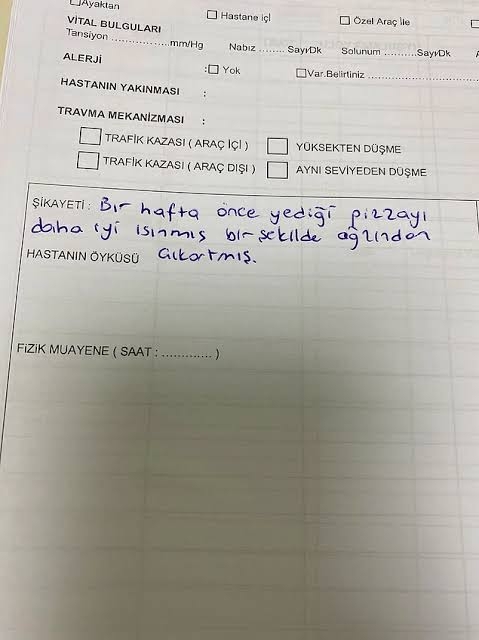 Ayaktan
Hastane içi
Özel Araç ile
VİTAL BULGULARI
Tansiyon ..................mm/Hg
Nabız ........ Sayı/Dk
Solunum ..........Sayı/Dk
ALERJİ
: Yok
Var.Belirtiniz ..............................
HASTANIN YAKINMASI :
TRAVMA MEKANİZMASI :
TRAFİK KAZASI ( ARAÇ İÇİ )
YÜKSEKTEN DÜŞME
TRAFİK KAZASI ( ARAÇ DIŞI )
AYNI SEVİYEDEN DÜŞME
ŞİKAYETİ : Bir hafta önce yediği pizzayı
daha iyi ısınmış bir şekilde ağzından
HASTANIN ÖYKÜSÜ çıkartmış.
FİZİK MUAYENE ( SAAT : ............. )